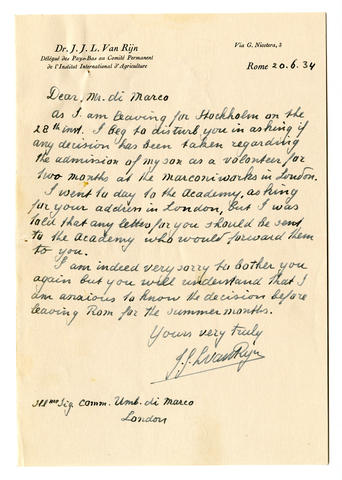 Dr. J. J. L. Van Rijn
Délégué des Pays-Bas au Comité Permanent
de l'Institut International d'Agriculture
Via G. Nicotera, 5
Rome 20.6.34
Dear, Mr. di Marco
as I am leaving for Stockholm on the
28th inst. I beg to disturb you in asking if
any decision has been taken regarding
the admission of my son as a volunteer for
two months at the marconiworks in London.
I went to day to the Academy, asking
for your address in London, but I was
told that any letter for you should be sent
to the Academy who would forward them
to you.
I am indeed very sorry to bother you
again but you will understand that I
am anxious to know the decision before
leaving Rom for the summer months.
Yours very truly
J J L van Rijn
Ill mo Sig. Comm. Umb. di Marco
London